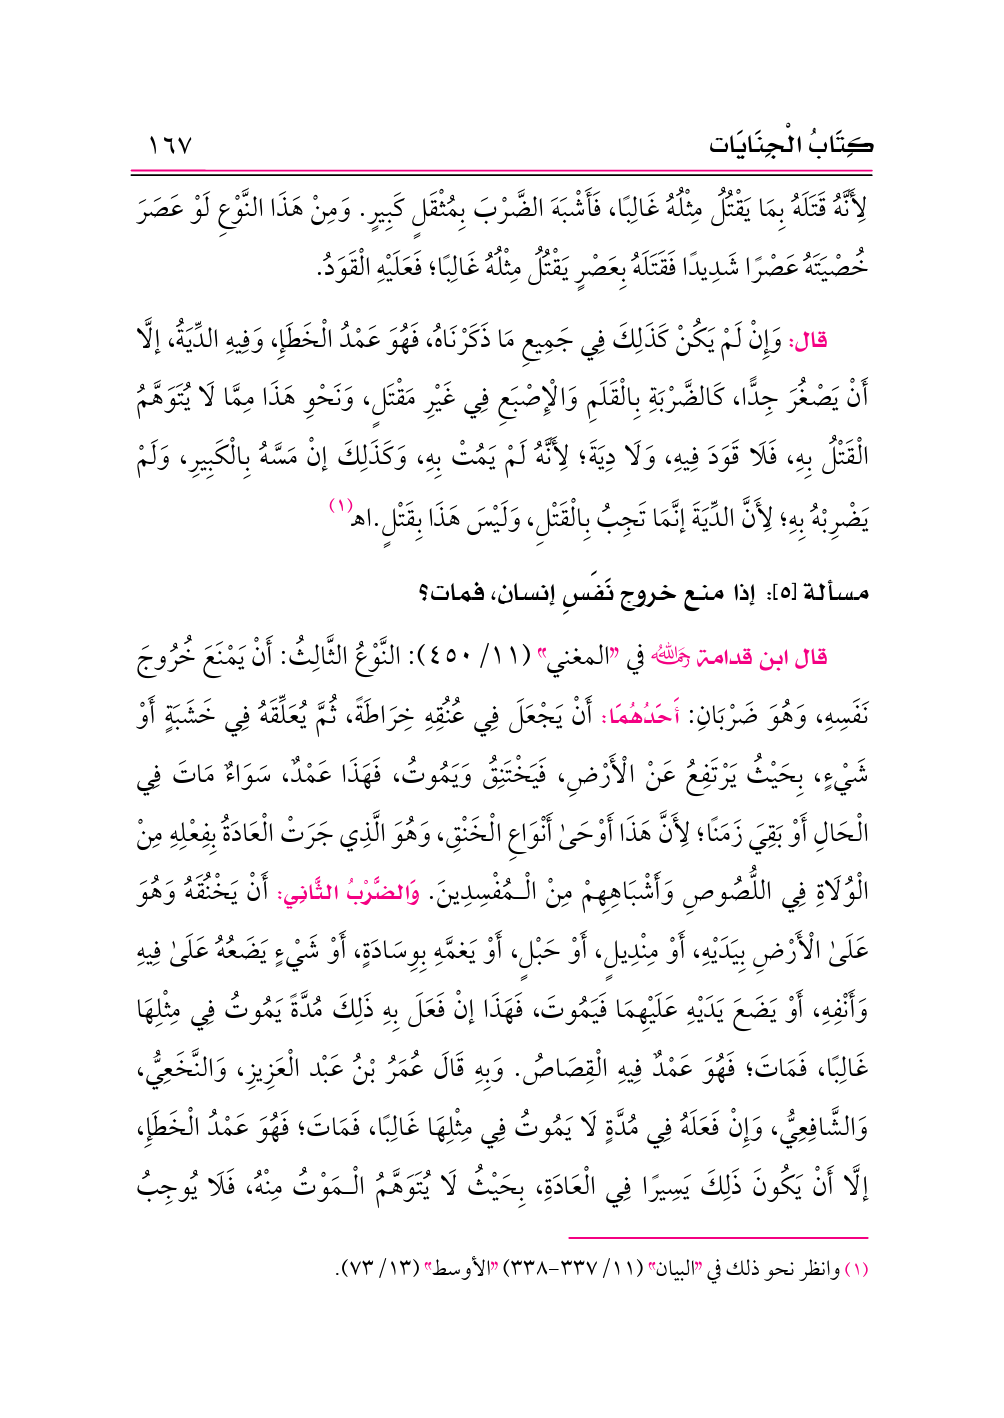 كِتَابُ الْجِنَايَات ١٦٧
لِأَنَّهُ قَتَلَهُ بِمَا يَقْتُلُ مِثْلُهُ غَالِبًا، فَأَشْبَهَ الضَّرْبَ بِمُثْقَلٍ كَبِيرٍ. وَمِنْ هَذَا النَّوْعِ لَوْ عَصَرَ
خُصْيَتَهُ عَصْرًا شَدِيدًا فَقَتَلَهُ بِعَصْرٍ يَقْتُلُ مِثْلُهُ غَالِبًا؛ فَعَلَيْهِ الْقَوَدُ.
قال: وَإِنْ لَمْ يَكُنْ كَذَلِكَ فِي جَمِيعِ مَا ذَكَرْنَاهُ، فَهُوَ عَمْدُ الْخَطَإِ، وَفِيهِ الدِّيَةُ، إلَّا
أَنْ يَصْغُرَ جِدًّا، كَالضَّرْبَةِ بِالْقَلَمِ وَالْإِصْبَعِ فِي غَيْرِ مَقْتَلٍ، وَنَحْوِ هَذَا مِمَّا لَا يُتَوَهَّمُ
الْقَتْلُ بِهِ، فَلَا قَوَدَ فِيهِ، وَلَا دِيَةَ؛ لِأَنَّهُ لَمْ يَمُتْ بِهِ، وَكَذَلِكَ إنْ مَسَّهُ بِالْكَبِيرِ، وَلَمْ
يَضْرِبْهُ بِهِ؛ لِأَنَّ الدِّيَةَ إنَّمَا تَجِبُ بِالْقَتْلِ، وَلَيْسَ هَذَا بِقَتْلٍ.اهـ (١)
مسألة [٥]: إذا منع خروج نَفَسِ إنسان، فمات؟
قال ابن قدامة رحمه الله في "المغني" (١١/ ٤٥٠): النَّوْعُ الثَّالِثُ: أَنْ يَمْنَعَ خُرُوجَ
نَفَسِهِ، وَهُوَ ضَرْبَانِ: أَحَدُهُمَا: أَنْ يَجْعَلَ فِي عُنُقِهِ خِرَاطَةً، ثُمَّ يُعَلِّقَهُ فِي خَشَبَةٍ أَوْ
شَيْءٍ، بِحَيْثُ يَرْتَفِعُ عَنْ الْأَرْضِ، فَيَخْتَنِقُ وَيَمُوتُ، فَهَذَا عَمْدٌ، سَوَاءٌ مَاتَ فِي
الْحَالِ أَوْ بَقِيَ زَمَنًا؛ لِأَنَّ هَذَا أَوْحَىٰ أَنْوَاعِ الْخَنْقِ، وَهُوَ الَّذِي جَرَتْ الْعَادَةُ بِفِعْلِهِ مِنْ
الْوُلَاةِ فِي اللُّصُوصِ وَأَشْبَاهِهِمْ مِنْ الْـمُفْسِدِينَ. وَالضَّرْبُ الثَّانِي: أَنْ يَخْنُقَهُ وَهُوَ
عَلَىٰ الْأَرْضِ بِيَدَيْهِ، أَوْ مِنْدِيلٍ، أَوْ حَبْلٍ، أَوْ يَغمَّهِ بِوِسَادَةٍ، أَوْ شَيْءٍ يَضَعُهُ عَلَىٰ فِيهِ
وَأَنْفِهِ، أَوْ يَضَعَ يَدَيْهِ عَلَيْهِمَا فَيَمُوتَ، فَهَذَا إنْ فَعَلَ بِهِ ذَلِكَ مُدَّةً يَمُوتُ فِي مِثْلِهَا
غَالِبًا، فَمَاتَ؛ فَهُوَ عَمْدٌ فِيهِ الْقِصَاصُ. وَبِهِ قَالَ عُمَرُ بْنُ عَبْد الْعَزِيزِ، وَالنَّخَعِيُّ،
وَالشَّافِعِيُّ، وَإِنْ فَعَلَهُ فِي مُدَّةٍ لَا يَمُوتُ فِي مِثْلِهَا غَالِبًا، فَمَاتَ؛ فَهُوَ عَمْدُ الْخَطَإِ،
إلَّا أَنْ يَكُونَ ذَلِكَ يَسِيرًا فِي الْعَادَةِ، بِحَيْثُ لَا يُتَوَهَّمُ الْـمَوْتُ مِنْهُ، فَلَا يُوجِبُ
(١) وانظر نحو ذلك في "البيان" (١١/ ٣٣٧-٣٣٨) "الأوسط" (١٣/ ٧٣).